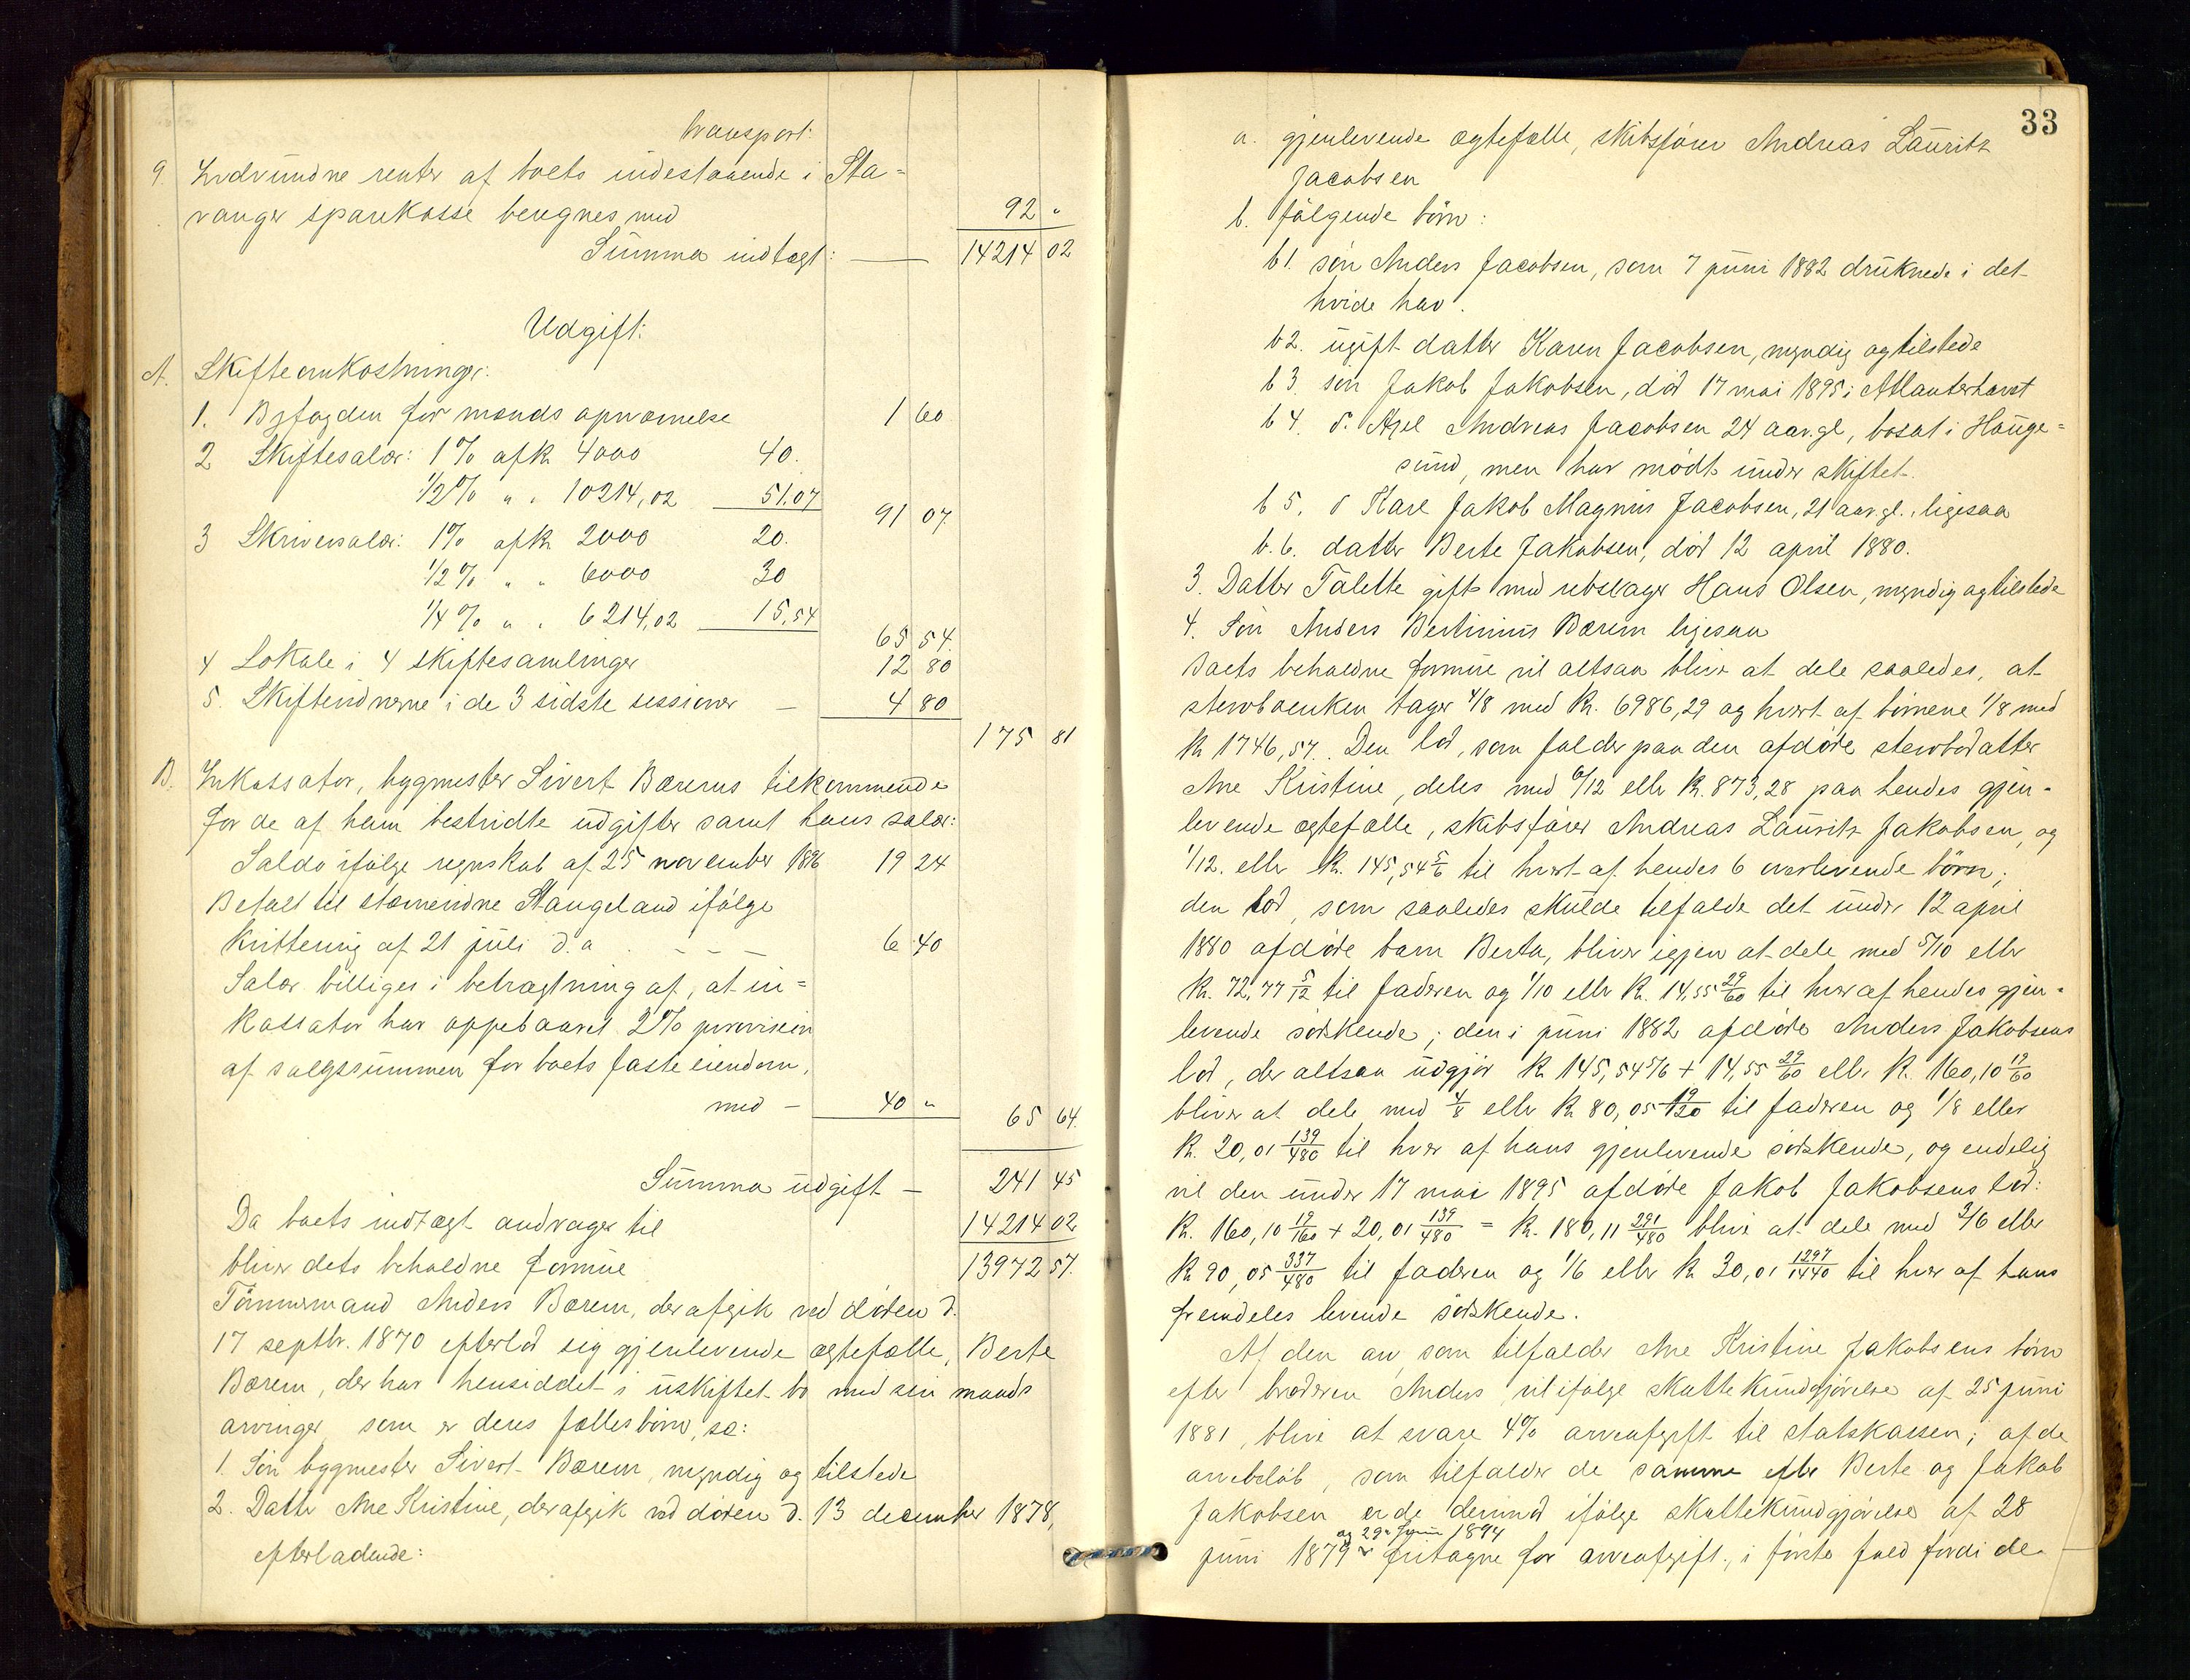 transport:
9. Indvundne renter af boets indestaaende i Sta=
vanger sparekasse beregnes med 92 "
Summa indtægt: 14214 02
Udgift:
A. Skifteomkostninger:
1. Byfogden for mænds opnævnelse 1 60
2 Skiftesalær: 1% af kr. 4000 40.
1/2% " " 10214,02 51.07
91 07.
3 Skriversalær: 1% af kr. 2000 20.
1/2% " " 6000 30
1/4% " " 6214,02 15,54
65 54.
4 Lokale i 4 skiftesamlinger 12 80
5. Skiftevidnerne i de 3 sidste sessioner - 4 80
175 81
B. Inkassator, bygmester Sivert Bærems tilkommende
for de af ham bestridte udgifter samt hans salær:
Saldo ifølge regnskab af 25 november 1896 19 24
Betalt til stævnevidne Stangeland ifølge
kvittering af 21 juli d.a. - - - 6 40
Salær billiges i betragtning af, at in=
kassator har oppebaaret 2% provision
af salgssummen for boets faste eiendom,
med - 40 "
65 64.
Summa udgift - 241 45
Da boets indtægt andrager til 14214 02
bliver dets beholdne formue 13972 57.
Tømmermand Anders Bærem, der afgik ved døden d.
17 septbr. 1870 efterlod sig gjenlevende ægtefælle, Berte
Bærem, der har hensiddet i uskiftet bo med sin mands
arvinger, som er deres fællesbørn, sc:
1. Søn bygmester Sivert Bærem, myndig og tilstede
2. Datter Ane Kristine, der afgik ved døden d. 13 december 1878,
efterladende:
33
a. gjenlevende ægtefælle, skibsfører Andreas Lauritz
Jacobsen
b. følgende børn:
b1. søn Anders Jacobsen, som 7 juni 1882 druknede i det
hvide hav.
b2. ugift datter Karen Jacobsen, myndig og tilstede
b3. søn Jakob Jakobsen, død 17 mai 1895 i Atlanterhavet
b4. s. Axel Andreas Jacobsen 24 aar gl, bosat i Hauge=
sund, men har mødt under skiftet.
b5. s Karl Jakob Magnus Jacobsen, 21 aar gl. ligesaa
b.6. datter Berte Jakobsen, død 12 april 1880.
3. Datter Talette gift med rebslager Hans Olsen, myndig og tilstede
4. Søn Anders Bertinius Bærem ligesaa
Boets beholdne formue vil altsaa blive at dele saaledes, at
stervboenken tager 4/8 med kr. 6986,29 og hvert af børnene 1/8 med
kr 1746,57. Den lod, som falder paa den afdøde stervbodatter
Ane Kristine, deles med 6/12 eller kr. 873,28 paa hendes gjen-
levende ægtefælle, skibsfører Andreas Lauritz Jakobsen, og
1/12. eller kr. 145,54 5/6 til hvert af hendes 6 overlevende børn;
den lod, som saaledes skulde tilfalde det under 12 april
1880 afdøde barn Berta, bliver igjen at dele med 5/10 eller
kr. 72,77 5/12 til faderen og 1/10 eller kr. 14,55 29/60 til hver af hendes gjen-
levende søskende; den i juni 1882 afdøde Anders Jakobsens
lod, der altsaa udgjør kr 145,54 5/6 + 14,55 29/60 eller kr. 160,10 19/60
bliver at dele med 4/8 eller kr 80,05 19/120 til faderen og 1/8 eller
kr. 20,01 139/480 til hver af hans gjenlevende søskende, og endelig
vil den under 17 mai 1895 afdøde Jakob Jakobsens lod:
kr. 160,10 19/160 + 20,01 139/480 = kr. 180,11 291/480 blive at dele med 3/6 eller
kr 90,05 337/480 til faderen og 1/6 eller kr 30,01 1297/1440 til hver af hans
fremdeles levende søskende.
Af den arv, som tilfalder Ane Kristine Jakobsens børn
efter broderen Anders, vil ifølge skattekundgjørelse af 25 juni
1881, blive at svare 4% arveafgift til statskassen; af de
arvebeløb, som tilfalder de samme efter Berte og Jakob
Jakobsen er de derimod ifølge skattekundgjørelse af 28
og 29 juni 1894
juni 1879 fritagne for arveafgift, i første fald fordi de